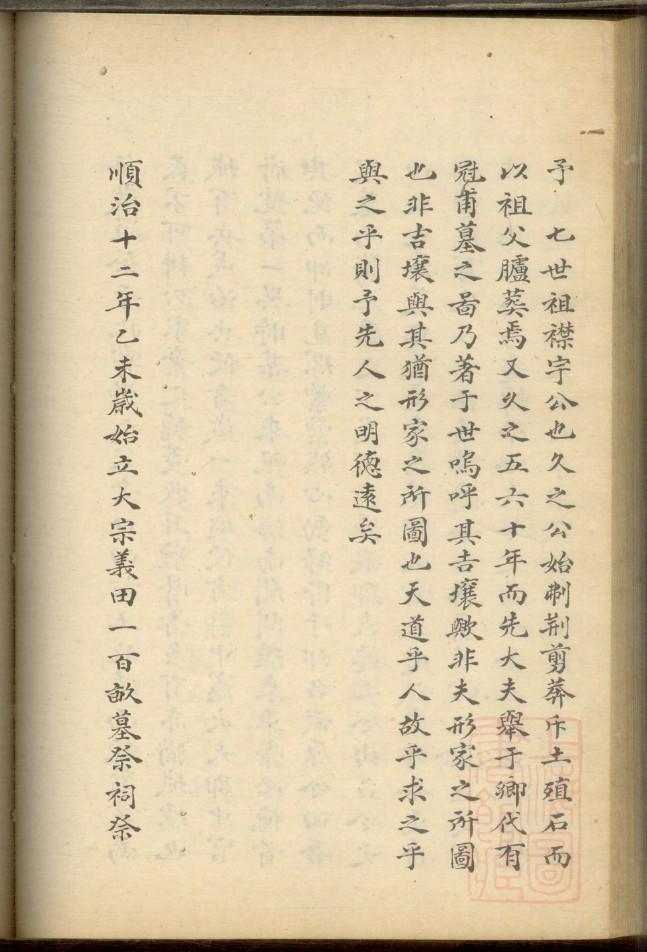 予　七世祖襟宇公也久之公始刜荆剪莽斥土殖石而
以祖父臚葬焉又久之五六十年而先大夫舉于鄉代有
冠甫墓之啚乃著于世嗚呼其吉壤歟非夫形家之所圖
也非吉壤與其猶形家之所圖也天道乎人故乎求之乎
與之乎則予先人之明德遠矣
順治十二年乙未歲始立大宗義田一百畝墓祭祠祭